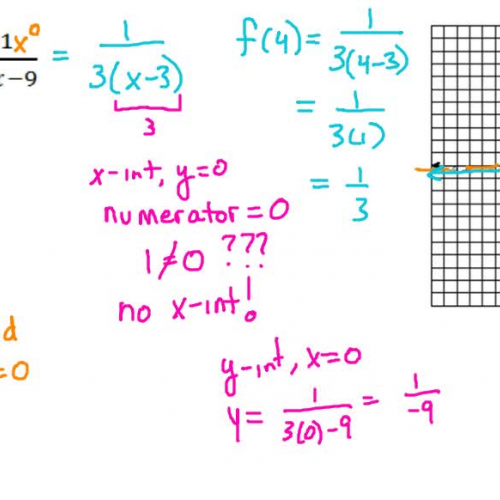 1x⁰/x-9 = 1/3(x-3)
3
f(4) = 1/3(4-3)
= 1/3(1)
= 1/3
x-int, y=0
numerator = 0
1≠0 ???
no x-int!
d
=0
y-int, x=0
y= 1/3(0)-9 = 1/-9